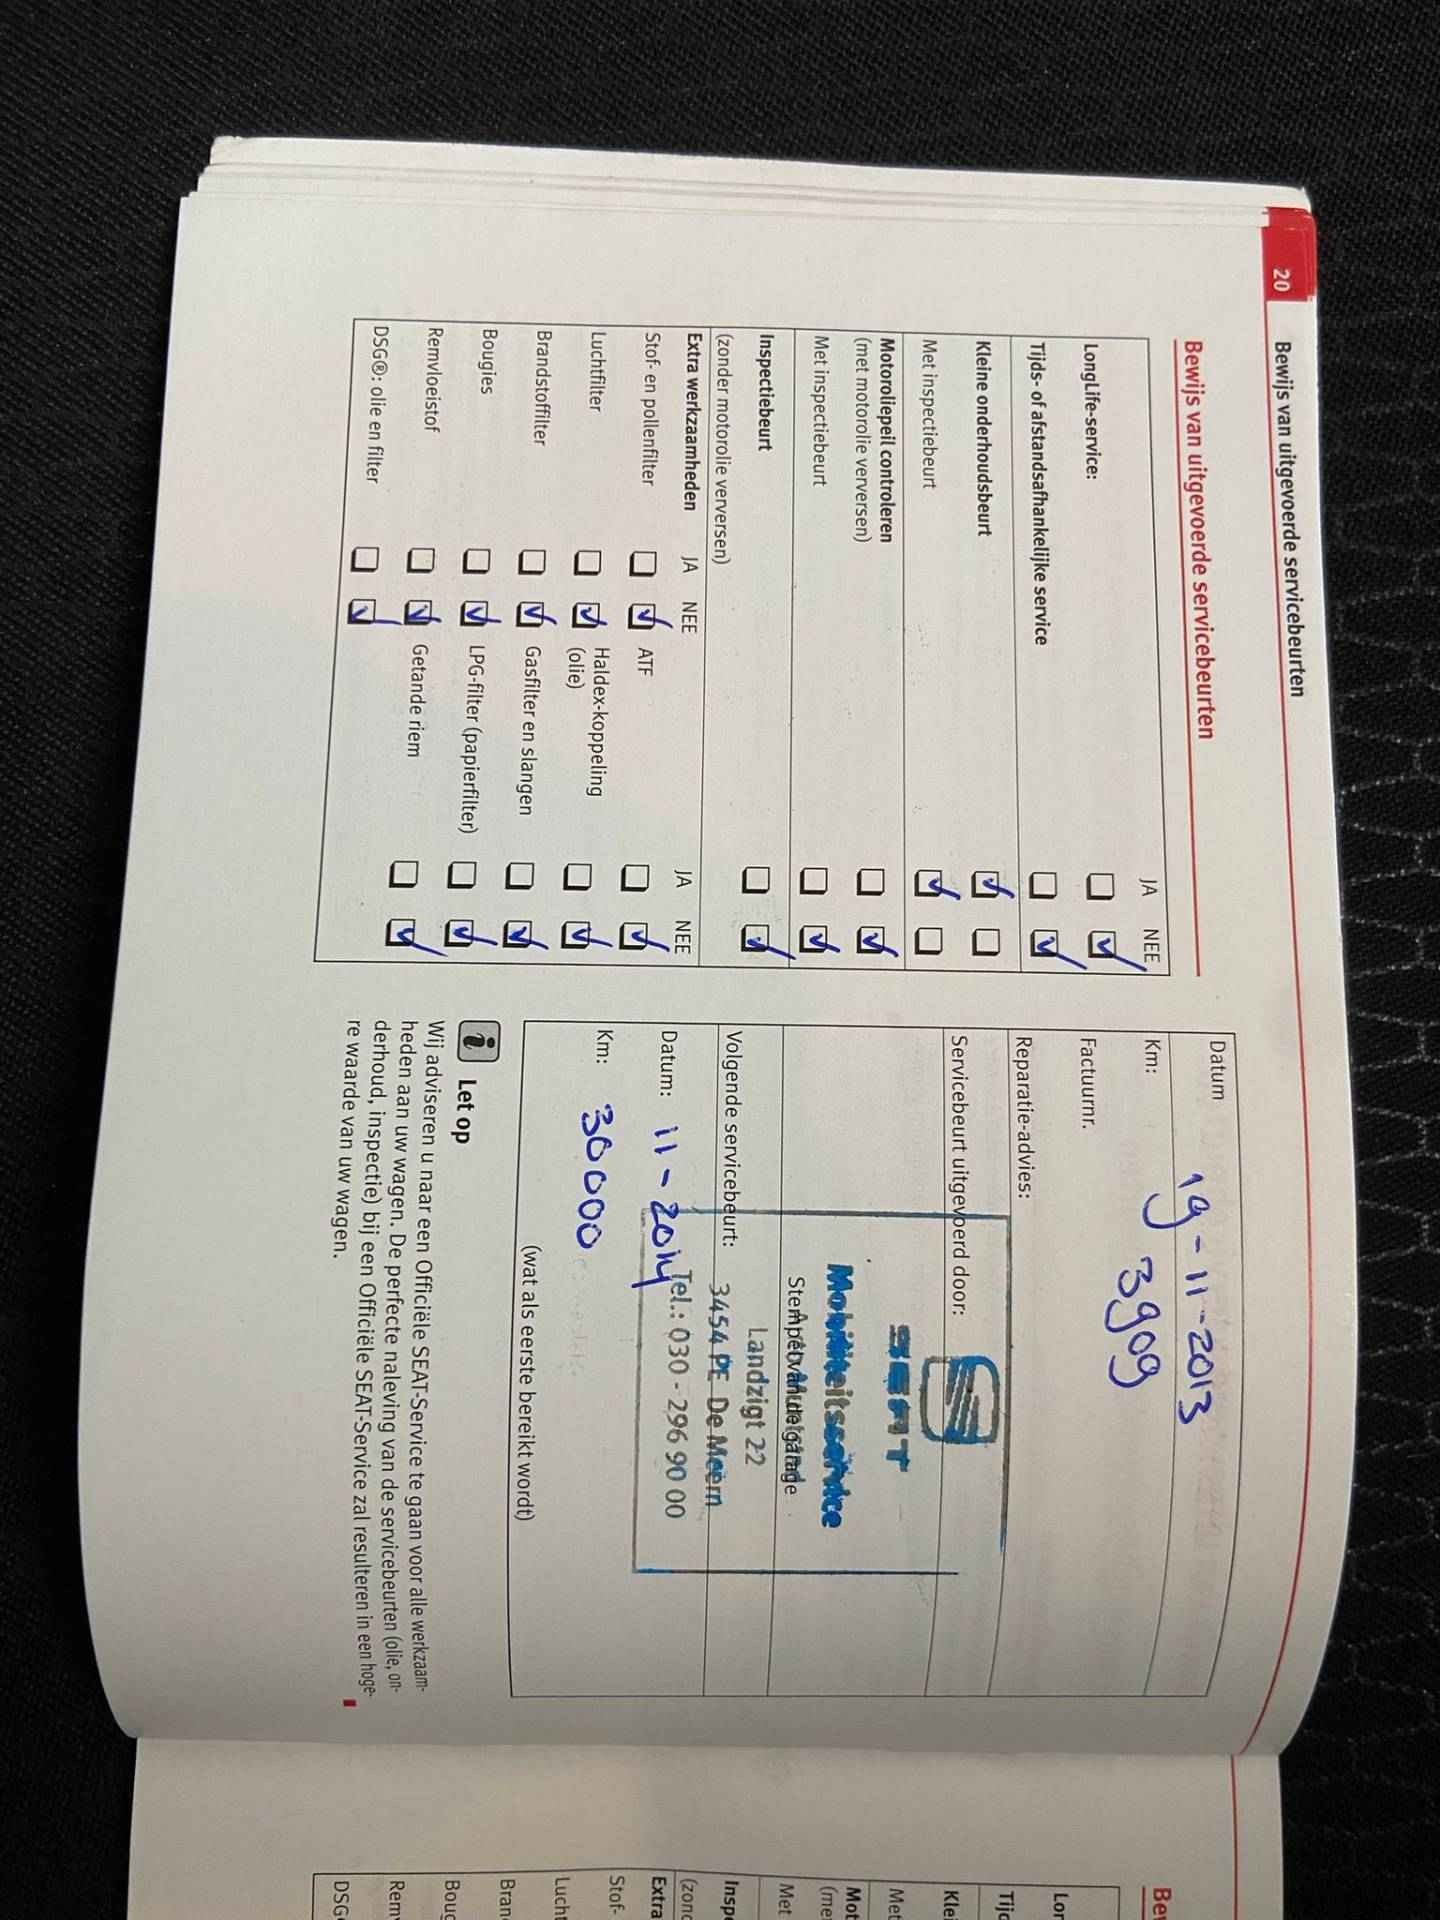 20 Bewijs van uitgevoerde servicebeurten
Bewijs van uitgevoerde servicebeurten
JA NEE
LongLife-service:
Tijds- of afstandsafhankelijke service
Kleine onderhoudsbeurt
Met inspectiebeurt
Motoroliepeil controleren
(met motorolie verversen)
Met inspectiebeurt
Inspectiebeurt
(zonder motorolie verversen)
Extra werkzaamheden JA NEE JA NEE
Stof- en pollenfilter ATF
Luchtfilter Haldex-koppeling
(olie)
Brandstoffilter Gasfilter en slangen
Bougies LPG-filter (papierfilter)
Remvloeistof Getande riem
DSG®: olie en filter
Datum 19-11-2013
Km: 3909
Factuurnr.
Reparatie-advies:
Servicebeurt uitgevoerd door:
SEAT
Mobiliteitsservice
Stempel van de garage
Landzigt 22
Volgende servicebeurt:
3454 PE De Meern
Datum: 11-2014
Tel.: 030 - 296 90 00
Km: 30000
(wat als eerste bereikt wordt)
i Let op
Wij adviseren u naar een Officiële SEAT-Service te gaan voor alle werkzaam-
heden aan uw wagen. De perfecte naleving van de servicebeurten (olie, on-
derhoud, inspectie) bij een Officiële SEAT-Service zal resulteren in een hoge-
re waarde van uw wagen.
Bew
Lon
Tijd
Klei
Met
Mot
(me
Met
Insp
(zond
Extra
Stof-
Lucht
Bran
Boug
Remv
DSG